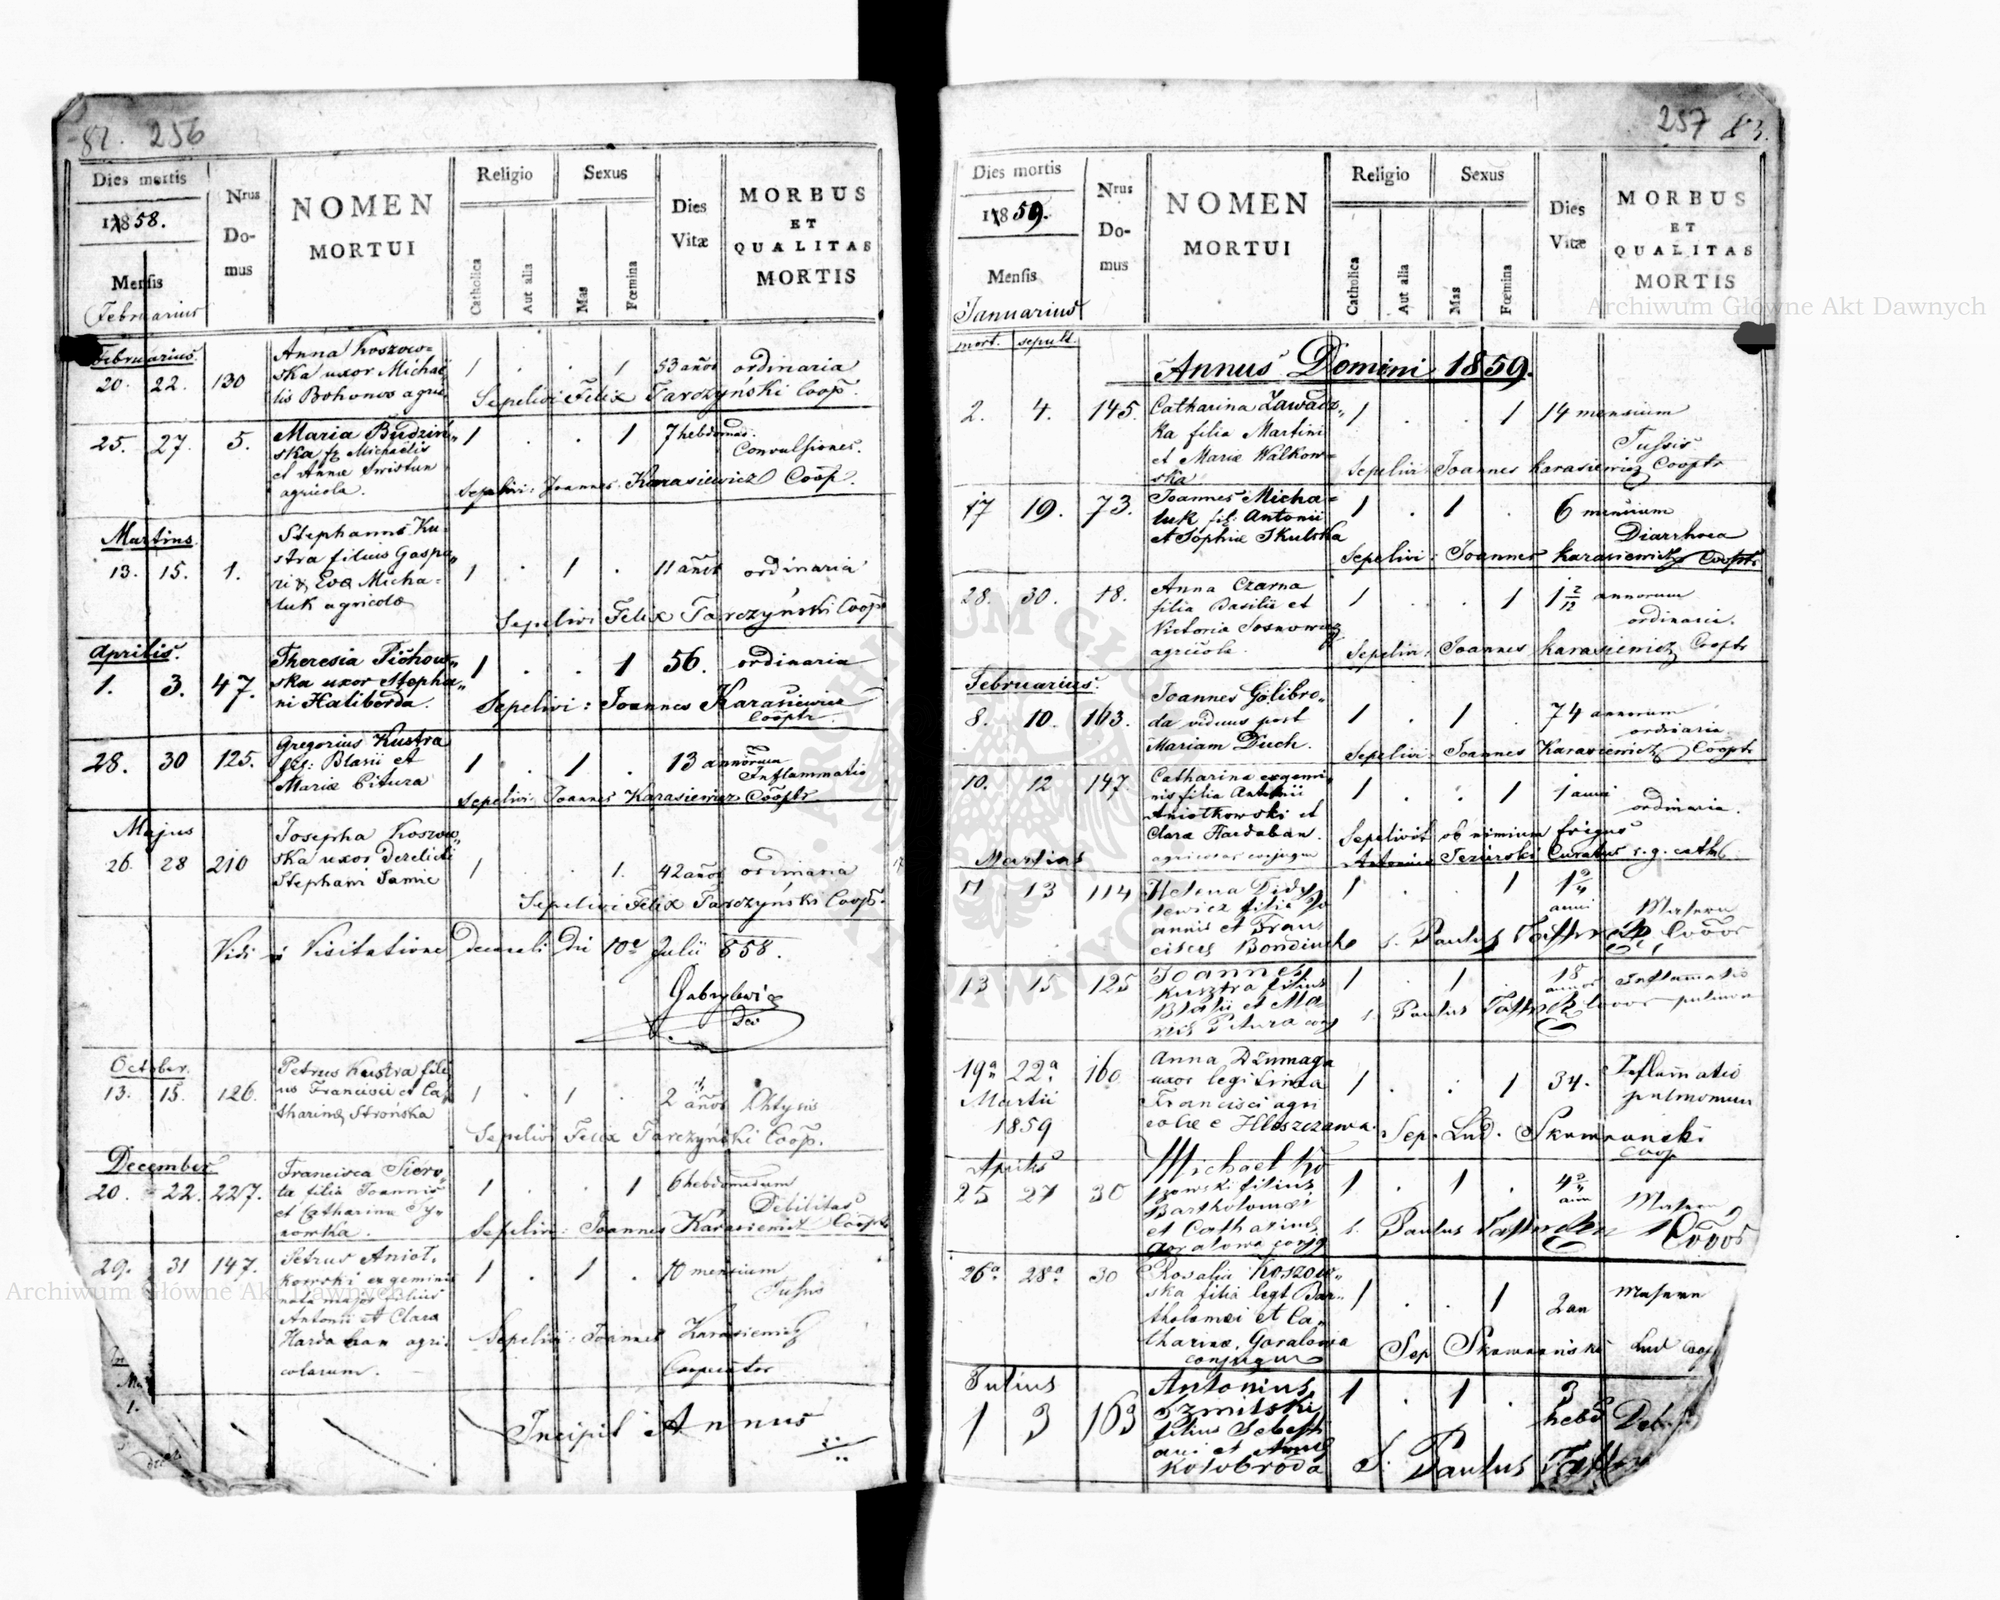 82. 256
Dies mortis
1858.
Mensis
Februarius
Nrus
Do-
mus
NOMEN
MORTUI
Religio
Catholica
Aut alia
Sexus
Mas
Fœmina
Dies
Vitæ
MORBUS
ET
QUALITAS
MORTIS
Februarius.
20. 22. 130
Anna Koszow=
ska uxor Michae
lis Bohonos agric.
1 . . 1 53 años ordinaria
Sepelivi Felix Tarczyński Coop.
25. 27. 5.
Maria Budziń„
ska f. Michaelis
et Annæ Swistun
agricola.
1 . . 1 7 hebdomad.
Convulsiones.
Sepelivi: Joannes Karasiewicz Coop.
Martius
13. 15. 1.
Stephanus Ku-
stra filius Gaspa„
ri & Eva Micha-
luk agricolæ
1 . 1 . 11 años ordinaria
Sepelivi Felix Tarczyński Coop
Aprilis.
1. 3. 47.
Theresia
ska uxor Stepha„
ni Haliborda.
1 . . 1 56. ordinaria
Sepelivi: Joannes Karasiewicz
Cooptr.
28. 30 125.
Gregorius Kustra
fil: Blasii et
Mariæ Pitura
1 . 1 . 13 annorum
Inflammatio
Sepelivi: Joannes Karasiewicz Cooptr
Majus
26. 28 210
Josepha Koszow„
ska uxor derelicti
Stephani Samic
1 . . 1. 42 años ordinaria
Sepelivi Felix Tarczyński Coop.
Vidi in Visitatione decanali die 10a Julii 858.
October.
13. 15. 126.
Petrus Kustra fili
us Francisci et Ca
tharinæ Strońska
1 . 1 . 2 años Phtysis
Sepelivi Felix Tarczyński Coop.
December
20. 22. 227.
Francisca Siero„
ta filia Joannis
et Catharinæ Sy„
rowka.
1 . . 1 6 hebdomadum
Debilitas
Sepelivi: Joannes Karasiewicz Cooptr
29. 31 147.
Petrus Aniot.
kowski ex geminis
nata major filius
Antonii et Clara
Hardaban agri:
colarum.
1 . 1 . 10 mensium
Tussis
Sepelivi: Joannes Karasiewicz
Cooperator
Incipit Annus
257 83.
Dies mortis
1859.
Mensis
Januarius
mort. sepult.
Nrus
Do-
mus
NOMEN
MORTUI
Religio
Catholica
Aut alia
Sexus
Mas
Fœmina
Dies
Vitæ
MORBUS
ET
QUALITAS
MORTIS
Annus Domini 1859.
2. 4. 145.
Catharina Zawadz„
ka filia Martini
et Mariæ Walkow=
ska
1 . . 1 14 mensium
Tussis
Sepelivi Joannes Karasiewicz Cooptr
17 19. 73.
Joannes Micha=
luk fil: Antonii
et Sophiæ Skulska
1 . 1 . 6 mensium
Diarrhoea
Sepelivi: Joannes Karasiewicz Cooptr
28. 30. 18.
Anna Czarna
filia Basilii et
Victoria Sosnowicz
agricola.
1 . . 1 1 2/12 annorum
ordinaria.
Sepelivi: Joannes Karasiewicz Cooptr
Februarius.
8. 10. 163.
Joannes Golibro=
da viduus post
Mariam Duch.
1 . 1 . 74 annorum
ordinaria
Sepelivi: Joannes Karasiewicz Cooptr
10. 12 147.
Catharina ex gemi„
nis filia Antonii
Aniotkowski et
Claræ Hardaban.
agricolar conjugum
1 . . 1 1 anni
ordinaria.
Sepelivit ob nimium frigus
Antonius Jezierski Curatus r.g. cath.
Martius
11 13 114
Helena
filia Jo
annis et Fran
ciscæ
1 . . 1
anni
s. Paulus
13 15 125
Joannes
Kusztra filius
Blasii et Ma
riæ Pitura conj
1 . 1 . 18
annor
Inflamatio
pulmon
s. Paulus
19a 22a 160
Martii
1859
Anna Dżumaga
uxor legitima
Francisci agri
colæ e Hleszczawa.
1 . . 1 34.
Inflamatio
pulmonum
Sep. Lud. Skawroński
Coop
Aprilis
25 27 30
Michael Ko
szowski filius
Bartholomæi
et Catharinæ
Goralowa conjg
1 . 1 .
s. Paulus
26a 28a 30
Rosalia Koszow„
ska filia legt Bar„
tholomæi et Ca„
tharinæ Goralowia
conjugum
1 . . 1 2 an
Sep Skawroński Lud Coop
Julius
1 3 163
Antonius
filius Sebasti
ani et Annæ
Kolobroda
1 . 1 . 3
hebd
S. Paulus
Archiwum Główne Akt Dawnych
Archiwum Główne Akt Dawnych